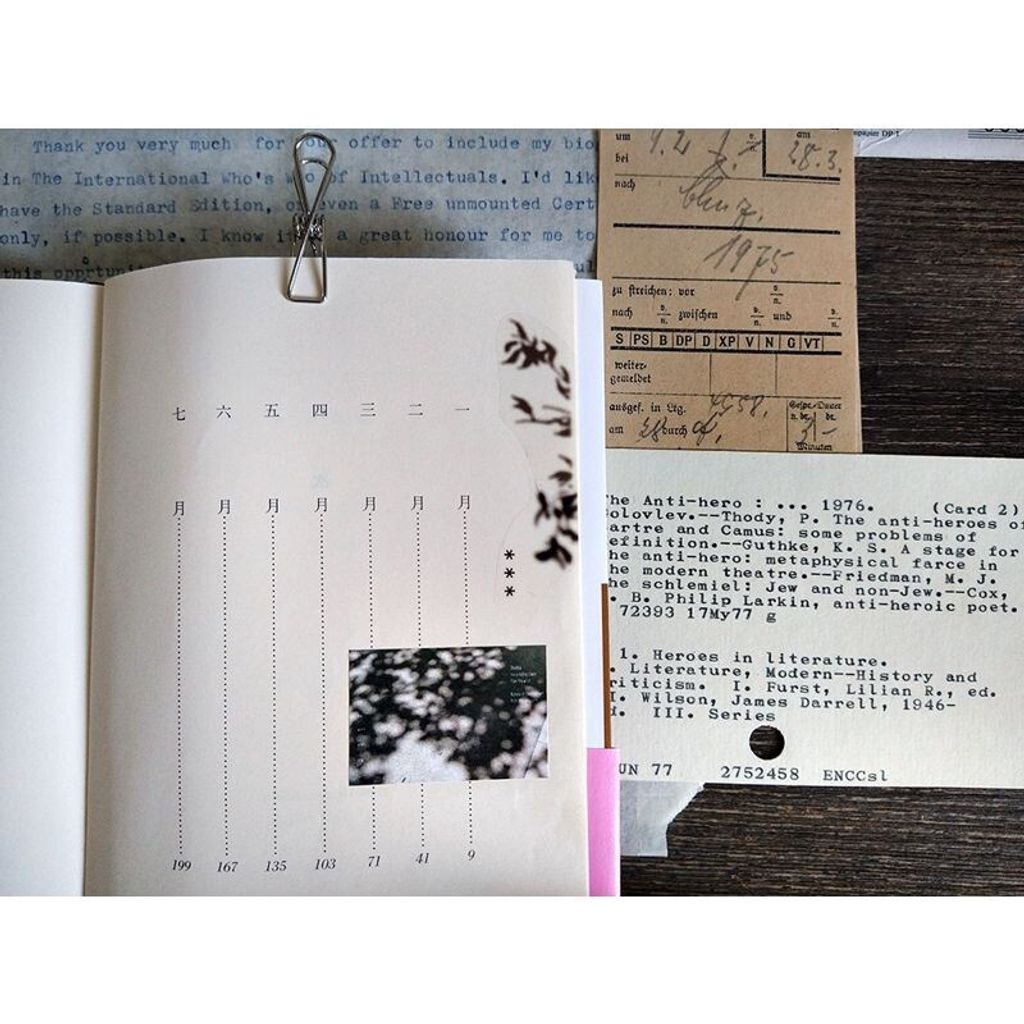 Thank you very much for your offer to include my bio
in The International Who's Who of Intellectuals. I'd lik
have the Standard Edition, or even a Free unmounted Cert
only, if possible. I know it a great honour for me to
this opprtuni
um 4.2
am 28.3.
bei
nach
1975
zu streichen: vor v. n.
nach v. n. zwischen v. n. und v. n.
S PS B DP D XP V N G VT
weiter-
gemeldet
ausgef. in Ltg. 4958.
am durch
Gespr.-Dauer
n. be. be.
3 -
Minuten
一月 9
二月 41
三月 71
四月 103
五月 135
六月 167
七月 199
***
he Anti-hero : ... 1976. (Card 2)
olovlev.--Thody, P. The anti-heroes of
artre and Camus: some problems of
efinition.--Guthke, K. S. A stage for
he anti-hero: metaphysical farce in
he modern theatre.--Friedman, M. J.
he schlemiel: Jew and non-Jew.--Cox,
. B. Philip Larkin, anti-heroic poet.
72393 17My77 g
1. Heroes in literature.
. Literature, Modern--History and
riticism. I. Furst, Lilian R., ed.
I. Wilson, James Darrell, 1946-
d. III. Series
UN 77 2752458 ENCCsl